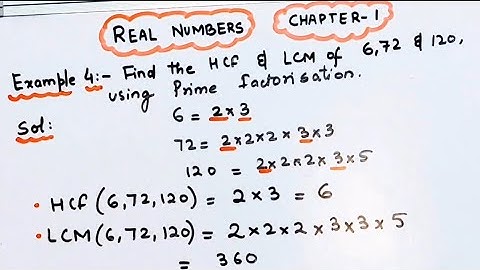 REAL NUMBERS CHAPTER-1
Example 4:- Find the HCf & LCM of 6,72 & 120,
using Prime factorisation.
Sol:
6 = 2×3
72 = 2×2×2×3×3
120 = 2×2×2×3×5
• HCf (6,72,120) = 2×3 = 6
• LCM(6,72,120) = 2×2×2×3×3×5
= 360